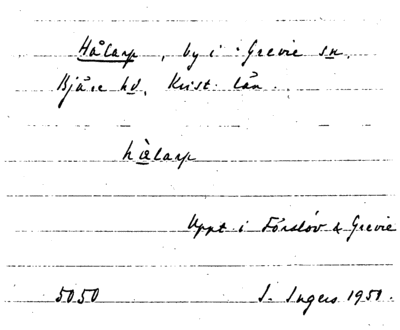 Hålarp, by i Grevie sn.
Bjäre hd, Krist. län.
hålarp
Uppt i Förslöv & Grevie
5050 I. Ingers 1950.